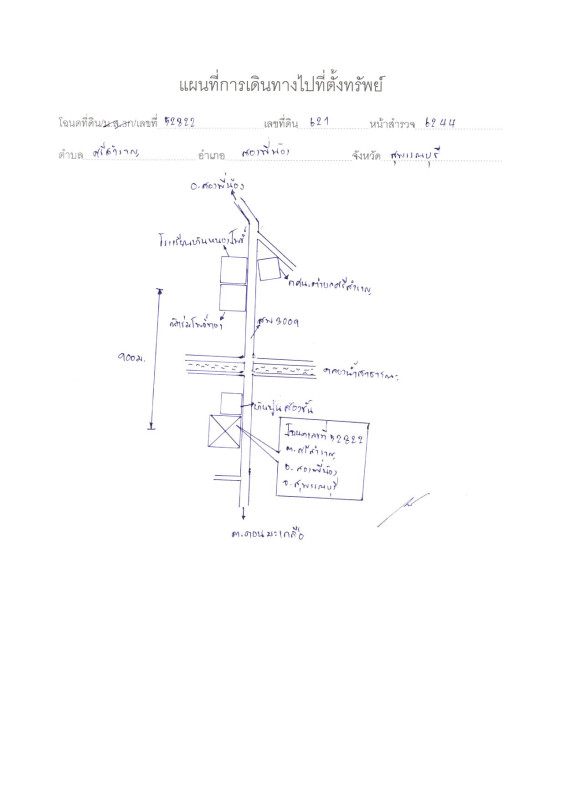 แผนที่การเดินทางไปที่ตั้งทรัพย์
โฉนดที่ดิน/น.ส.3ก/เลขที่ 52822 เลขที่ดิน 621 หน้าสำรวจ 6244
ตำบล ศรีสำราญ อำเภอ สองพี่น้อง จังหวัด สุพรรณบุรี
อ.สองพี่น้อง
กศน.ตำบลศรีสำราญ
สพ 3009
900 ม.
คลองน้ำสาธารณะ
บ้านปูนสองชั้น
โฉนดเลขที่ 52822
ต.ศรีสำราญ
อ.สองพี่น้อง
จ.สุพรรณบุรี
ต.ดอนมะเกลือ